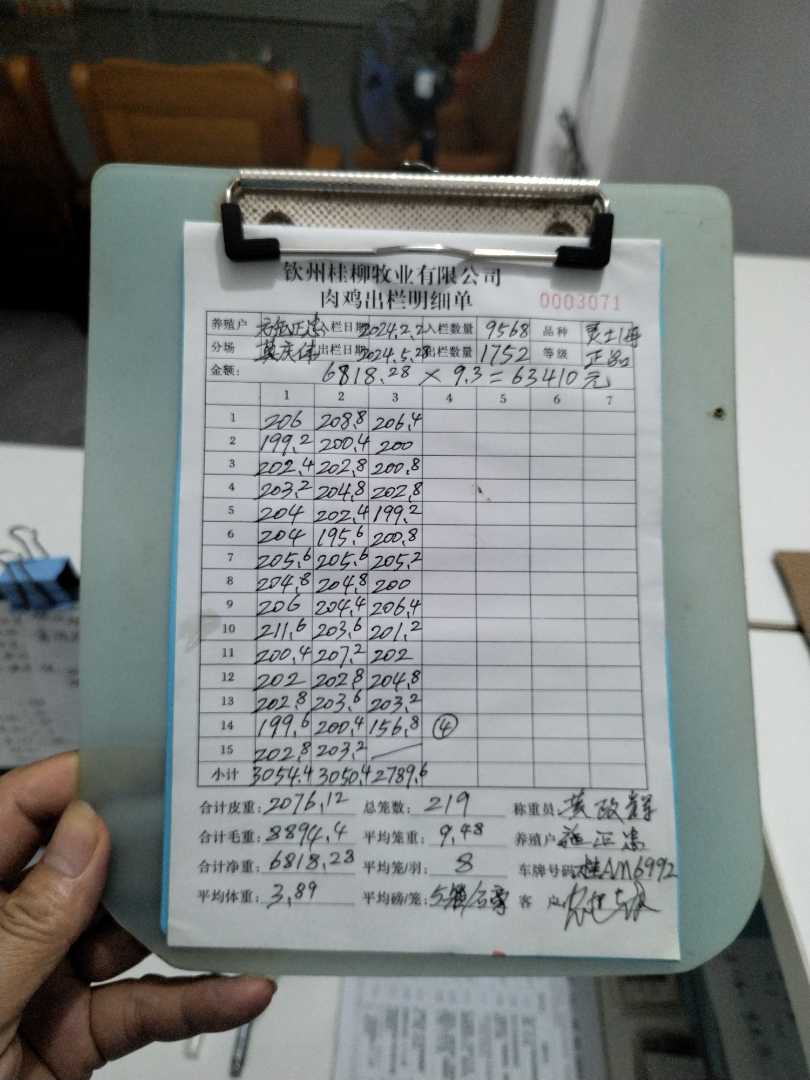 钦州桂柳牧业有限公司
肉鸡出栏明细单 0003071
养殖户 入栏日期 2024.2.2 入栏数量 9568 品种
分场 莫庆伟 出栏日期 2024.5.28 出栏数量 1752 等级 正品
金额: 6818.28 × 9.3 = 63410元
1 2 3 4 5 6 7
1 206 208.8 206.4
2 199.2 200.4 200
3 202.4 202.8 200.8
4 203.2 204.8 202.8
5 204 202.4 199.2
6 204 195.6 200.8
7 205.6 205.6 205.2
8 204.8 204.8 200
9 206 204.4 206.4
10 211.6 203.6 201.2
11 200.4 207.2 202
12 202 202.8 204.8
13 202.8 203.6 203.2
14 199.6 200.4 156.8 ④
15 202.8 203.2
小计 3054.4 3050.4 2789.6
合计皮重: 2076.12 总笼数: 219 称重员:
合计毛重: 8894.4 平均笼重: 9.48 养殖户:
合计净重: 6818.28 平均笼/羽: 8 车牌号码: 桂AM6992
平均体重: 3.89 平均磅/笼: 客户